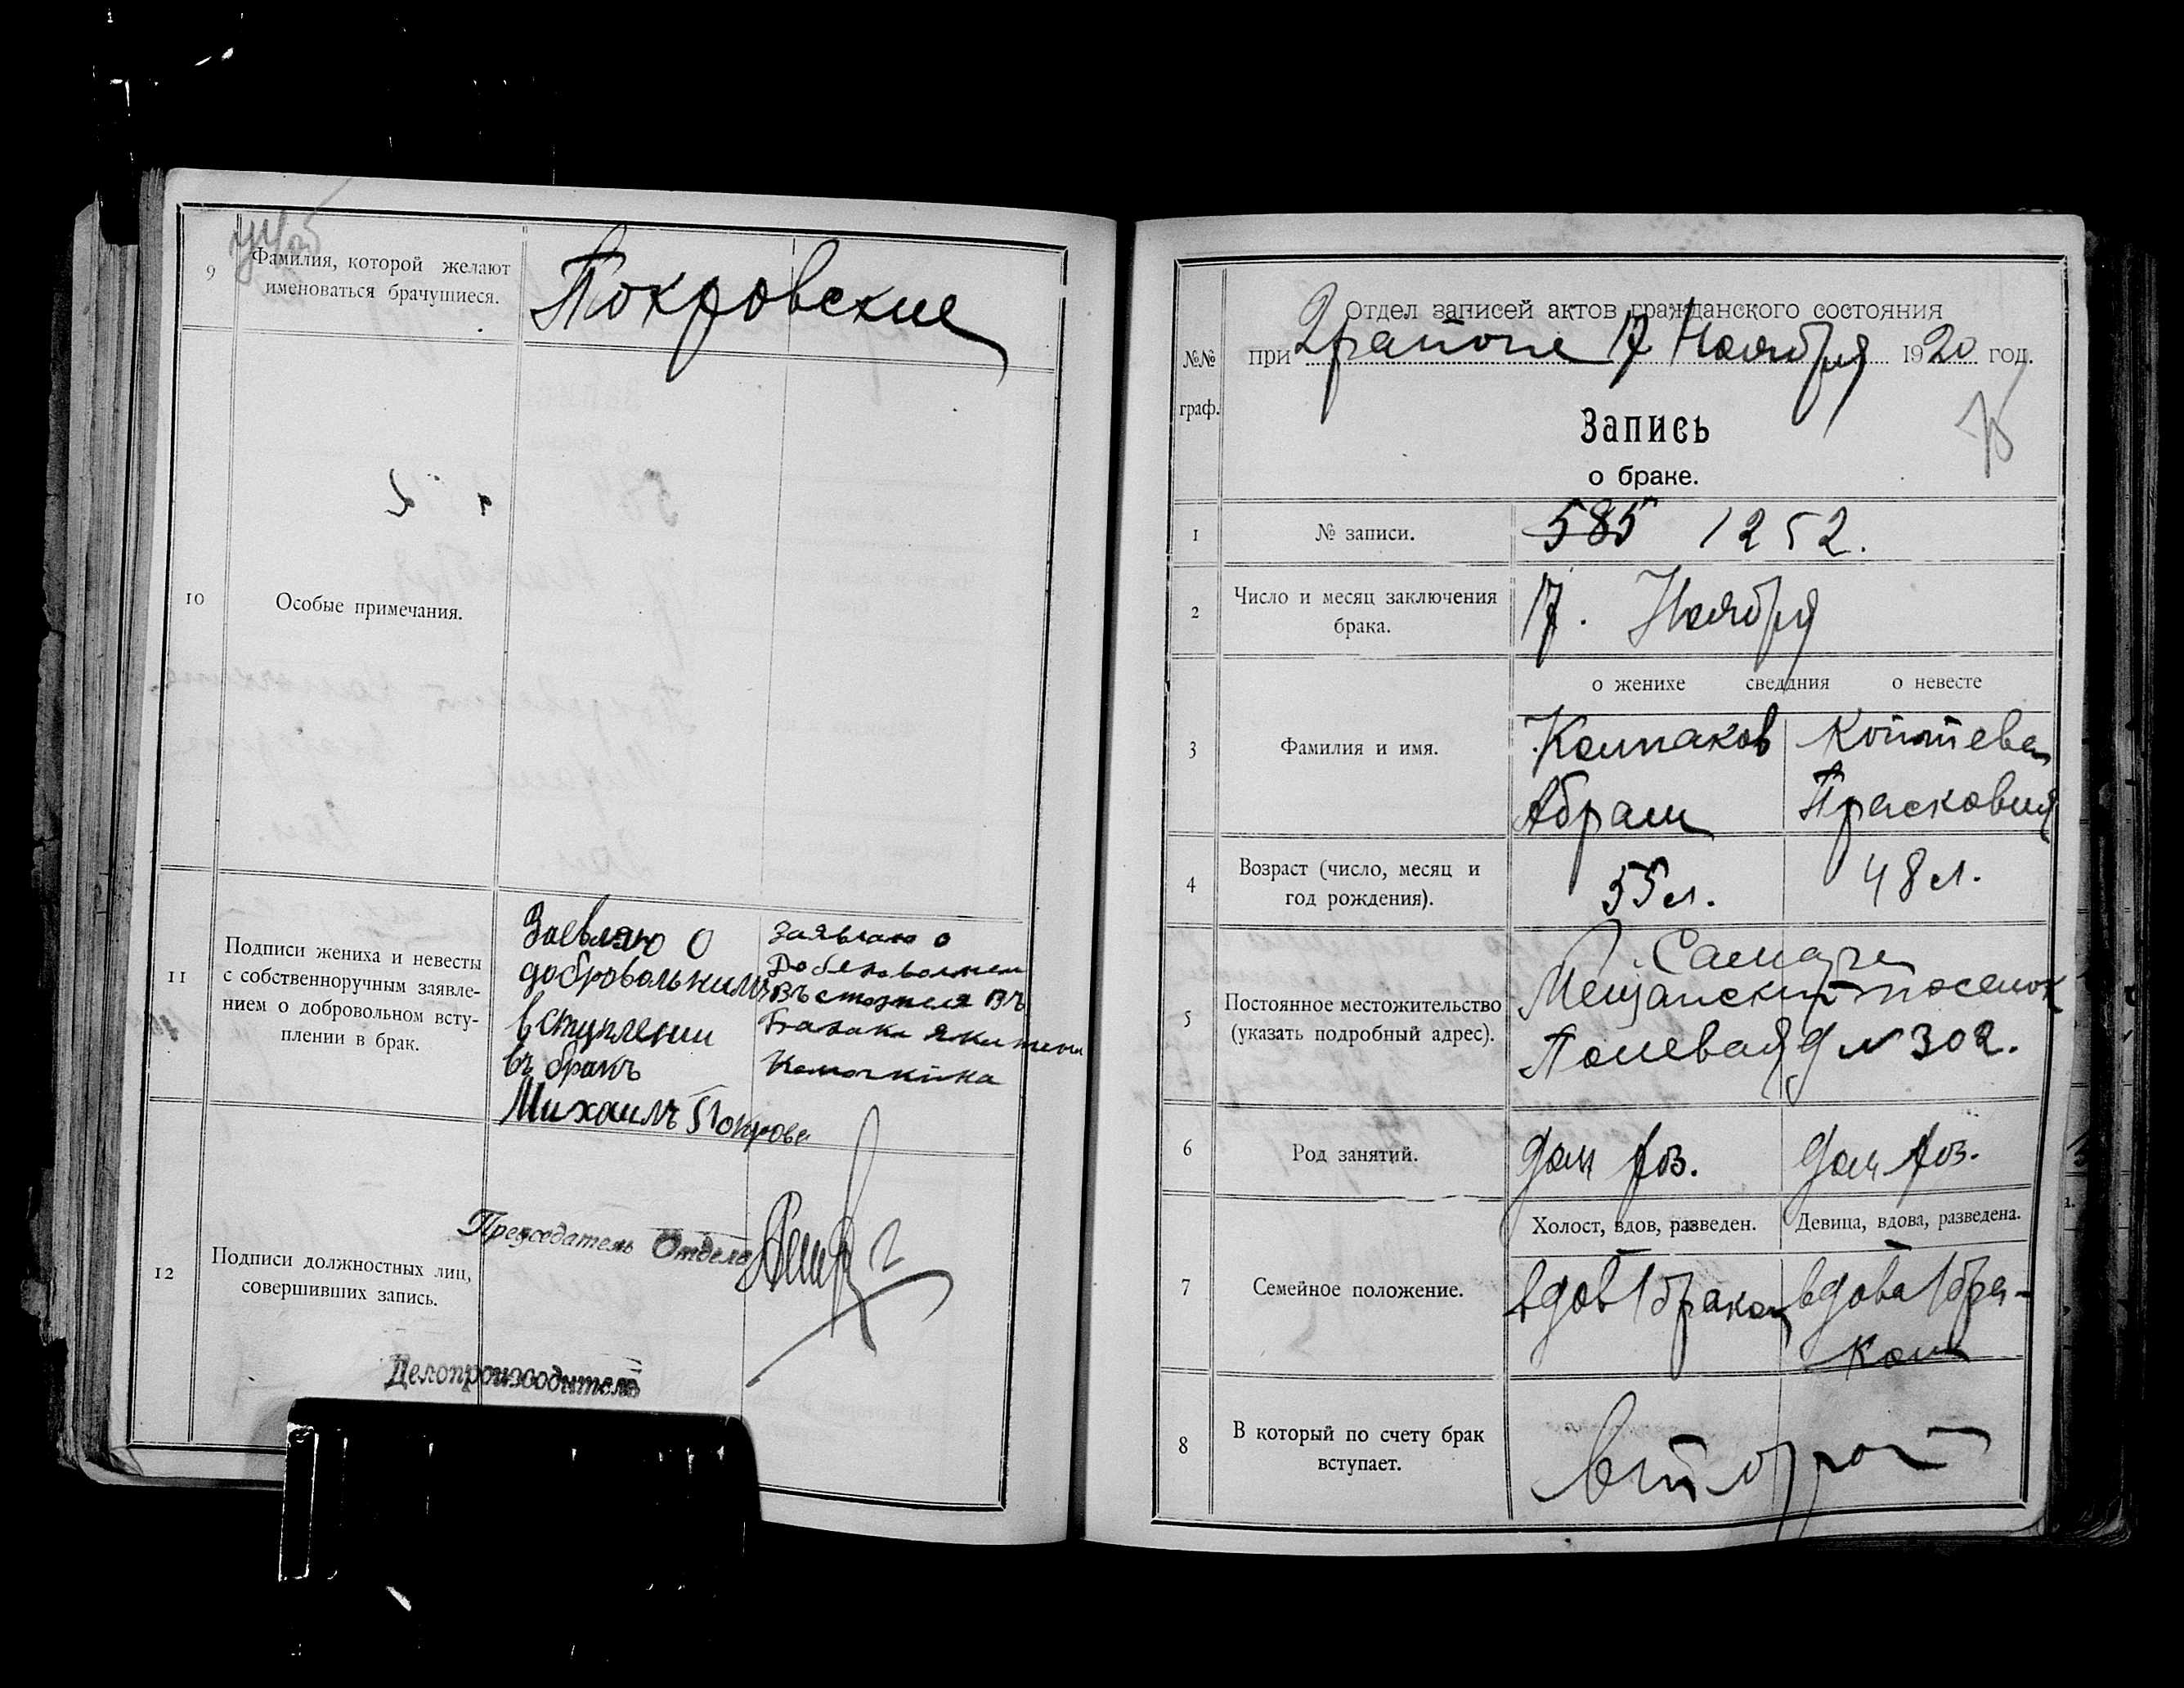 9
Фамилия, которой желают
именоваться брачущиеся.
Покровские
10
Особые примечания.
11
Подписи жениха и невесты
с собственноручным заявле-
нием о добровольном всту-
плении в брак.
Заевляю о
добровольнимъ
вступлении
въ бракъ
Михаилъ Покровс
Заявлаю о
12
Подписи должностных лиц,
совершивших запись.
Председатель Отдела
Делопроизводитель
№№
граф.
Отдел записей актов гражданского состояния
при 2 районе 17 Ноября 1920 год.
Запись
о браке.
1
№ записи.
585 1252.
2
Число и месяц заключения
брака.
17. Ноября
о женихе сведдния о невесте
3
Фамилия и имя.
Колпаков Коптева
Абрам Прасковия
4
Возраст (число, месяц и
год рождения).
55 л. 48 л.
5
Постоянное местожительство
(указать подробный адрес).
г. Самара
Мещанский поселок
Полевая д № 302.
6
Род занятий.
дом хоз. дом хоз.
Холост, вдов, разведен. Девица, вдова, разведена.
7
Семейное положение.
вдов 1 браком вдова 1 бра-
ком
8
В который по счету брак
вступает.
второй